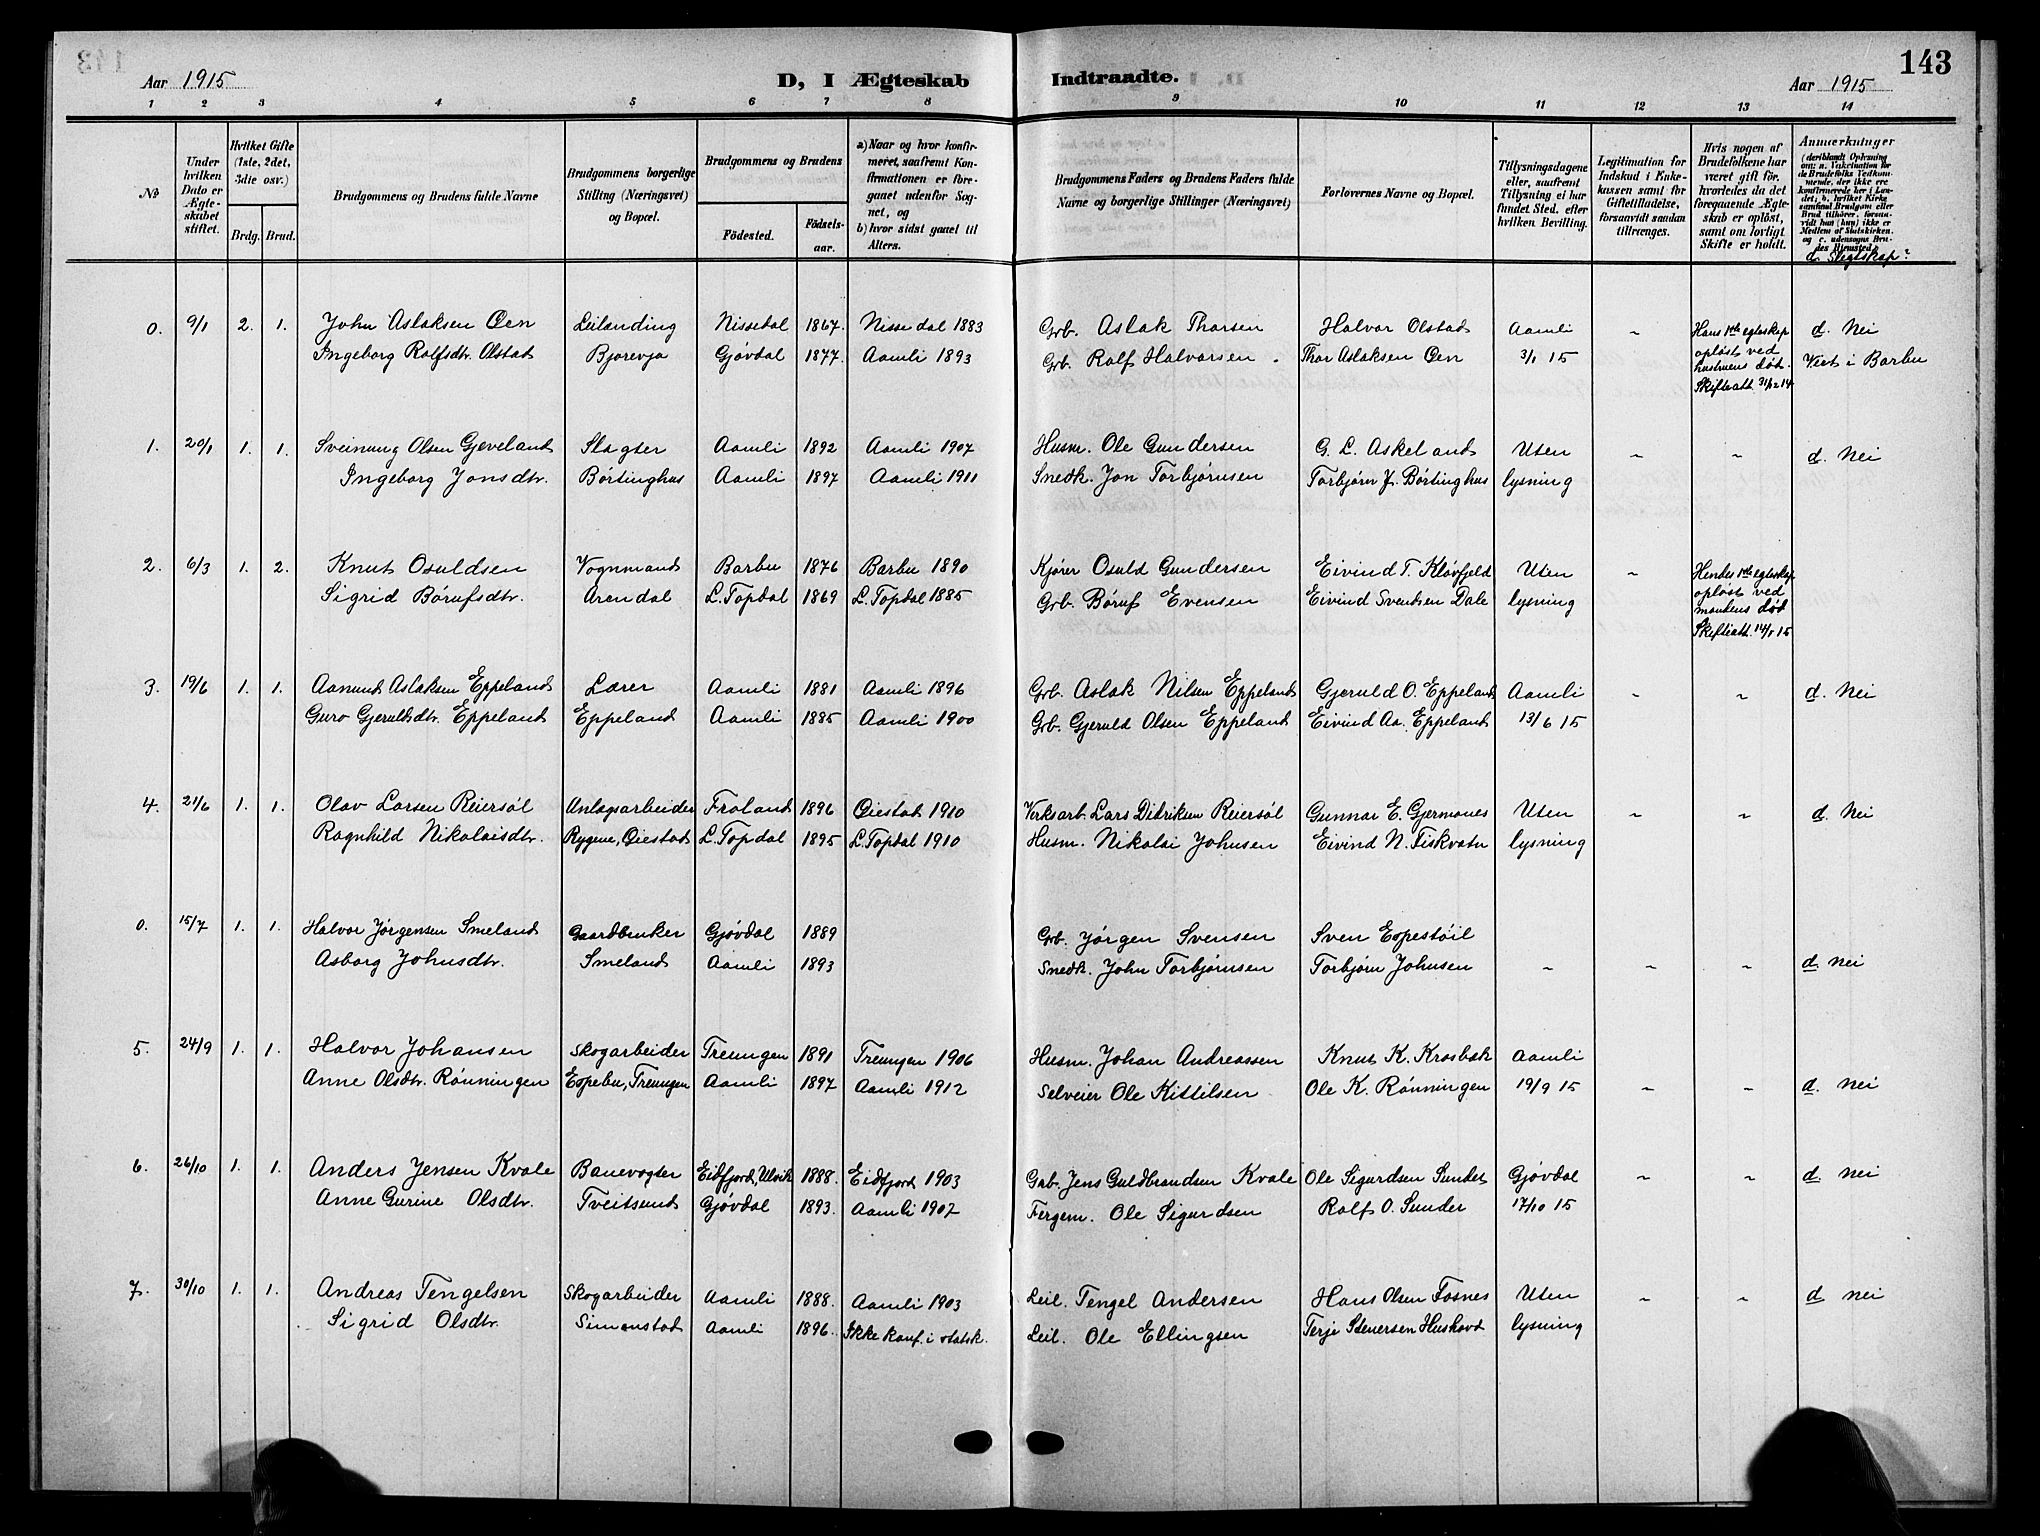 143
Aar 1915
D, I Ægteskab Indtraadte.
Aar 1915
1 2 3 4 5 6 7 8 9 10 11 12 13 14
No
Under hvilken Dato er Ægteskabet stiftet.
Hvilket Gifte (1ste, 2det, 3die osv.)
Brdg. Brud.
Brudgommens og Brudens fulde Navne
Brudgommens borgerlige Stilling (Næringsvei) og Bopæl.
Brudgommens og Brudens
Födested.
Födselsaar.
a) Naar og hvor konfirmeret, saafremt Konfirmationen er foregaaet udenfor Sognet, og
b) hvor sidst gaaet til Alters.
Brudgommens Faders og Brudens Faders fulde Navne og borgerlige Stillinger (Næringsvei)
Forlovernes Navne og Bopæl.
Tillysningsdagene eller, saafremt Tillysning ei har fundet Sted, efter hvilken Bevilling.
Legitimation for Indskud i Enkekassen samt for Giftetilladelse, forsaavidt saadan tiltrænges.
Hvis nogen af Brudefolkene har været gift før, hvorledes da det foregaaende Ægteskab er opløst, samt om lovligt Skifte er holdt.
Anmærkninger
d. Slegtskap?
0. 9/1 2. 1. John Aslaksen Øen Leilending Nissedal 1867. Nissedal 1883 Grb. Aslak Thorsen Halvor Olstad Aamli ~ Hans 1ste egteskap d. Nei
Ingeborg Rolfsdtr. Olstad Bjorevja Gjøvdal 1877. Aamli 1893 Grb. Rolf Halvorsen. Thor Aslaksen Øen 3/1 15 opløst ved Viet i Barbu
hustruens død.
Skifteatt. 31/12 14
1. 20/1 1. 1. Sveinung Olsen Gjeveland Slagter Aamli 1892 Aamli 1907 Husm. Ole Gundersen G. L. Askeland Uten ~ ~ d. Nei
Ingeborg Jonsdtr. Børtinghus Aamli 1897 Aamli 1911 Snedk. Jon Torbjørnsen Torbjørn J. Børtinghus lysning
2. 6/3 1. 2. Knut Osuldsen Vognmand Barbu 1876 Barbu 1890 Kjører Osuld Gundersen Eivind T. Kløvfjeld Uten ~ Hendes 1ste egteskap
Sigrid Børufsdtr. Arendal L. Topdal 1869 L. Topdal 1885 Grb. Børuf Evensen Eivind Svendsen Dale lysning opløst ved
mandens død
Skifteatt. 14/1 15
3. 19/6 1. 1. Aanund Aslaksen Eppeland Lærer Aamli 1881 Aamli 1896 Grb. Aslak Nilsen Eppeland Gjeruld O. Eppeland Aamli ~ ~ d. Nei
Guro Gjeruldsdtr. Eppeland Eppeland Aamli 1885 Aamli 1900 Grb. Gjeruld Olsen Eppeland Eivind Aa. Eppeland 13/6 15
4. 21/6 1. 1. Olav Larsen Reiersøl Anlægsarbeider Froland 1896 Øiestad 1910 Verksarb. Lars Didriksen Reiersøl Gunnar E. Gjermones Uten ~ ~ d. Nei
Ragnhild Nikolaisdtr. Rygene, Øiestad L. Topdal 1895 L. Topdal 1910 Husm. Nikolai Johnsen Eivind N. Fiskvatn lysning
0. 15/7 1. 1. Halvor Jørgensen Smeland Gaardbruker Gjøvdal 1889 Grb. Jørgen Svensen Sven Espestøil
Asborg Johnsdtr. Smeland Aamli 1893 Snedk. John Torbjørnsen Torbjørn Johnsen ~ ~ ~ d. Nei
5. 24/9 1. 1. Halvor Johansen Skogarbeider Treungen 1891 Treungen 1906 Husm. Johan Andreassen Knut K. Krosbæk Aamli
Anne Olsdtr. Rønningen Espebu, Treungen Aamli 1897 Aamli 1912 Selveier Ole Kittilsen Ole K. Rønningen 19/9 15 ~ ~ d. Nei
6. 26/10 1. 1. Anders Jensen Kvale Banevogter Eidfjord, Ulvik 1888. Eidfjord 1903 Grb. Jens Guldbrandsen Kvale Ole Sigurdsen Sundet Gjøvdal ~ ~ d. Nei
Anne Gurine Olsdtr. Tveitsund Gjøvdal 1893. Aamli 1907 Fergem. Ole Sigurdsen Rolf O. Sunder 17/10 15
7. 30/10 1. 1. Andreas Tengelsen Skogarbeider Aamli 1888. Aamli 1903 Leil. Tengel Andersen Hans Olsen Fosnes Uten ~ ~ d Nei
Sigrid Olsdtr. Simonstad Aamli 1896. Ikke konf. i statsk. Leil. Ole Ellingsen Terje Stenersen Huskovd lysning